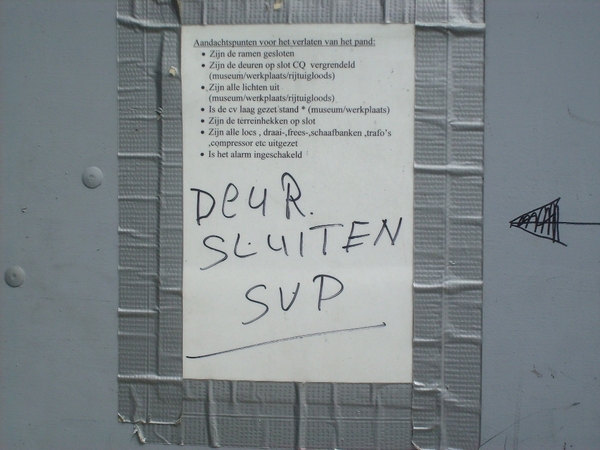 Aandachtspunten voor het verlaten van het pand:
• Zijn de ramen gesloten
• Zijn de deuren op slot CQ vergrendeld
(museum/werkplaats/rijtuigloods)
• Zijn alle lichten uit
(museum/werkplaats/rijtuigloods)
• Is de cv laag gezet stand * (museum/werkplaats)
• Zijn de terreinhekken op slot
• Zijn alle locs , draai-,frees-,schaafbanken ,trafo's
,compressor etc uitgezet
• Is het alarm ingeschakeld
DEUR.
SLUITEN
SVP